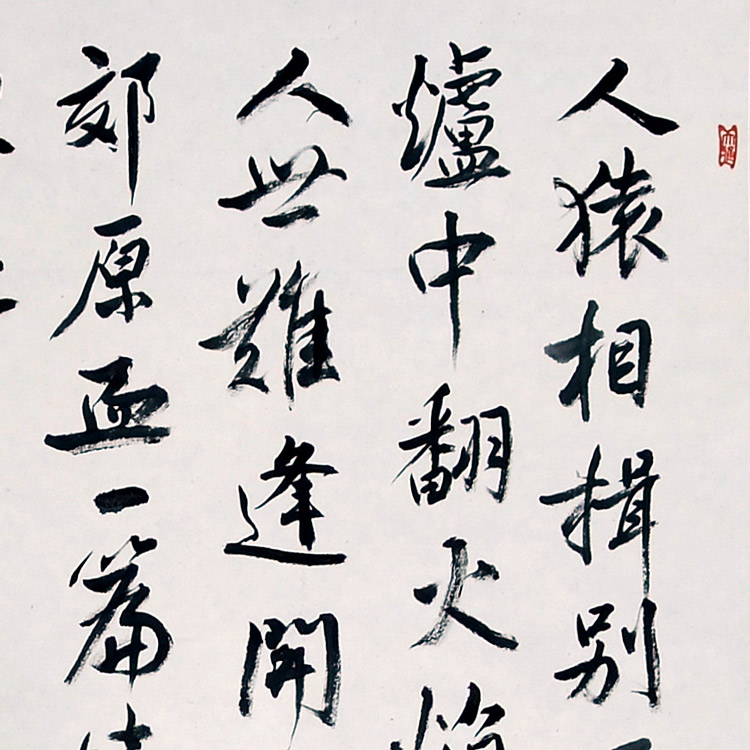 人猿相揖別
爐中翻火焰
人世難逢開
郊原血一篇